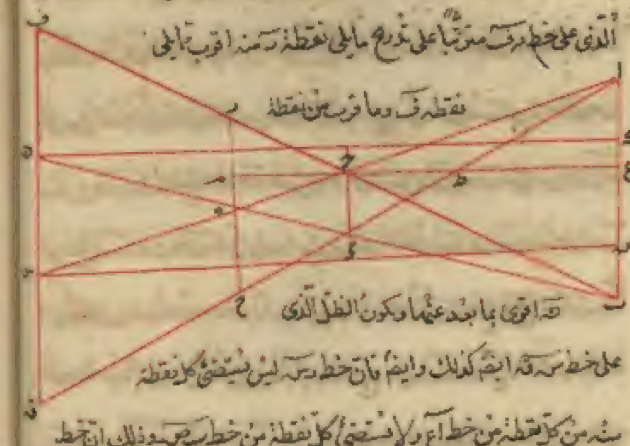 الذى على خط رف مترتبا على تدريج مايلى نقطة ر منه اقرب مايلى
نقطه ف وما قرب من نقطة
ف
ا
ر
ه
ح
م
ط
و
ع
ب
ق
قه اقوى مما بعد عنها ويكون الظل الذى
على خط سه قه ايضا كذلك وايضا فان خط رسه ليس يستضئ كل نقطة
منه من كل نقطة من خط آع ولا تستضئ كل نقطة من خط وذلك ان خط